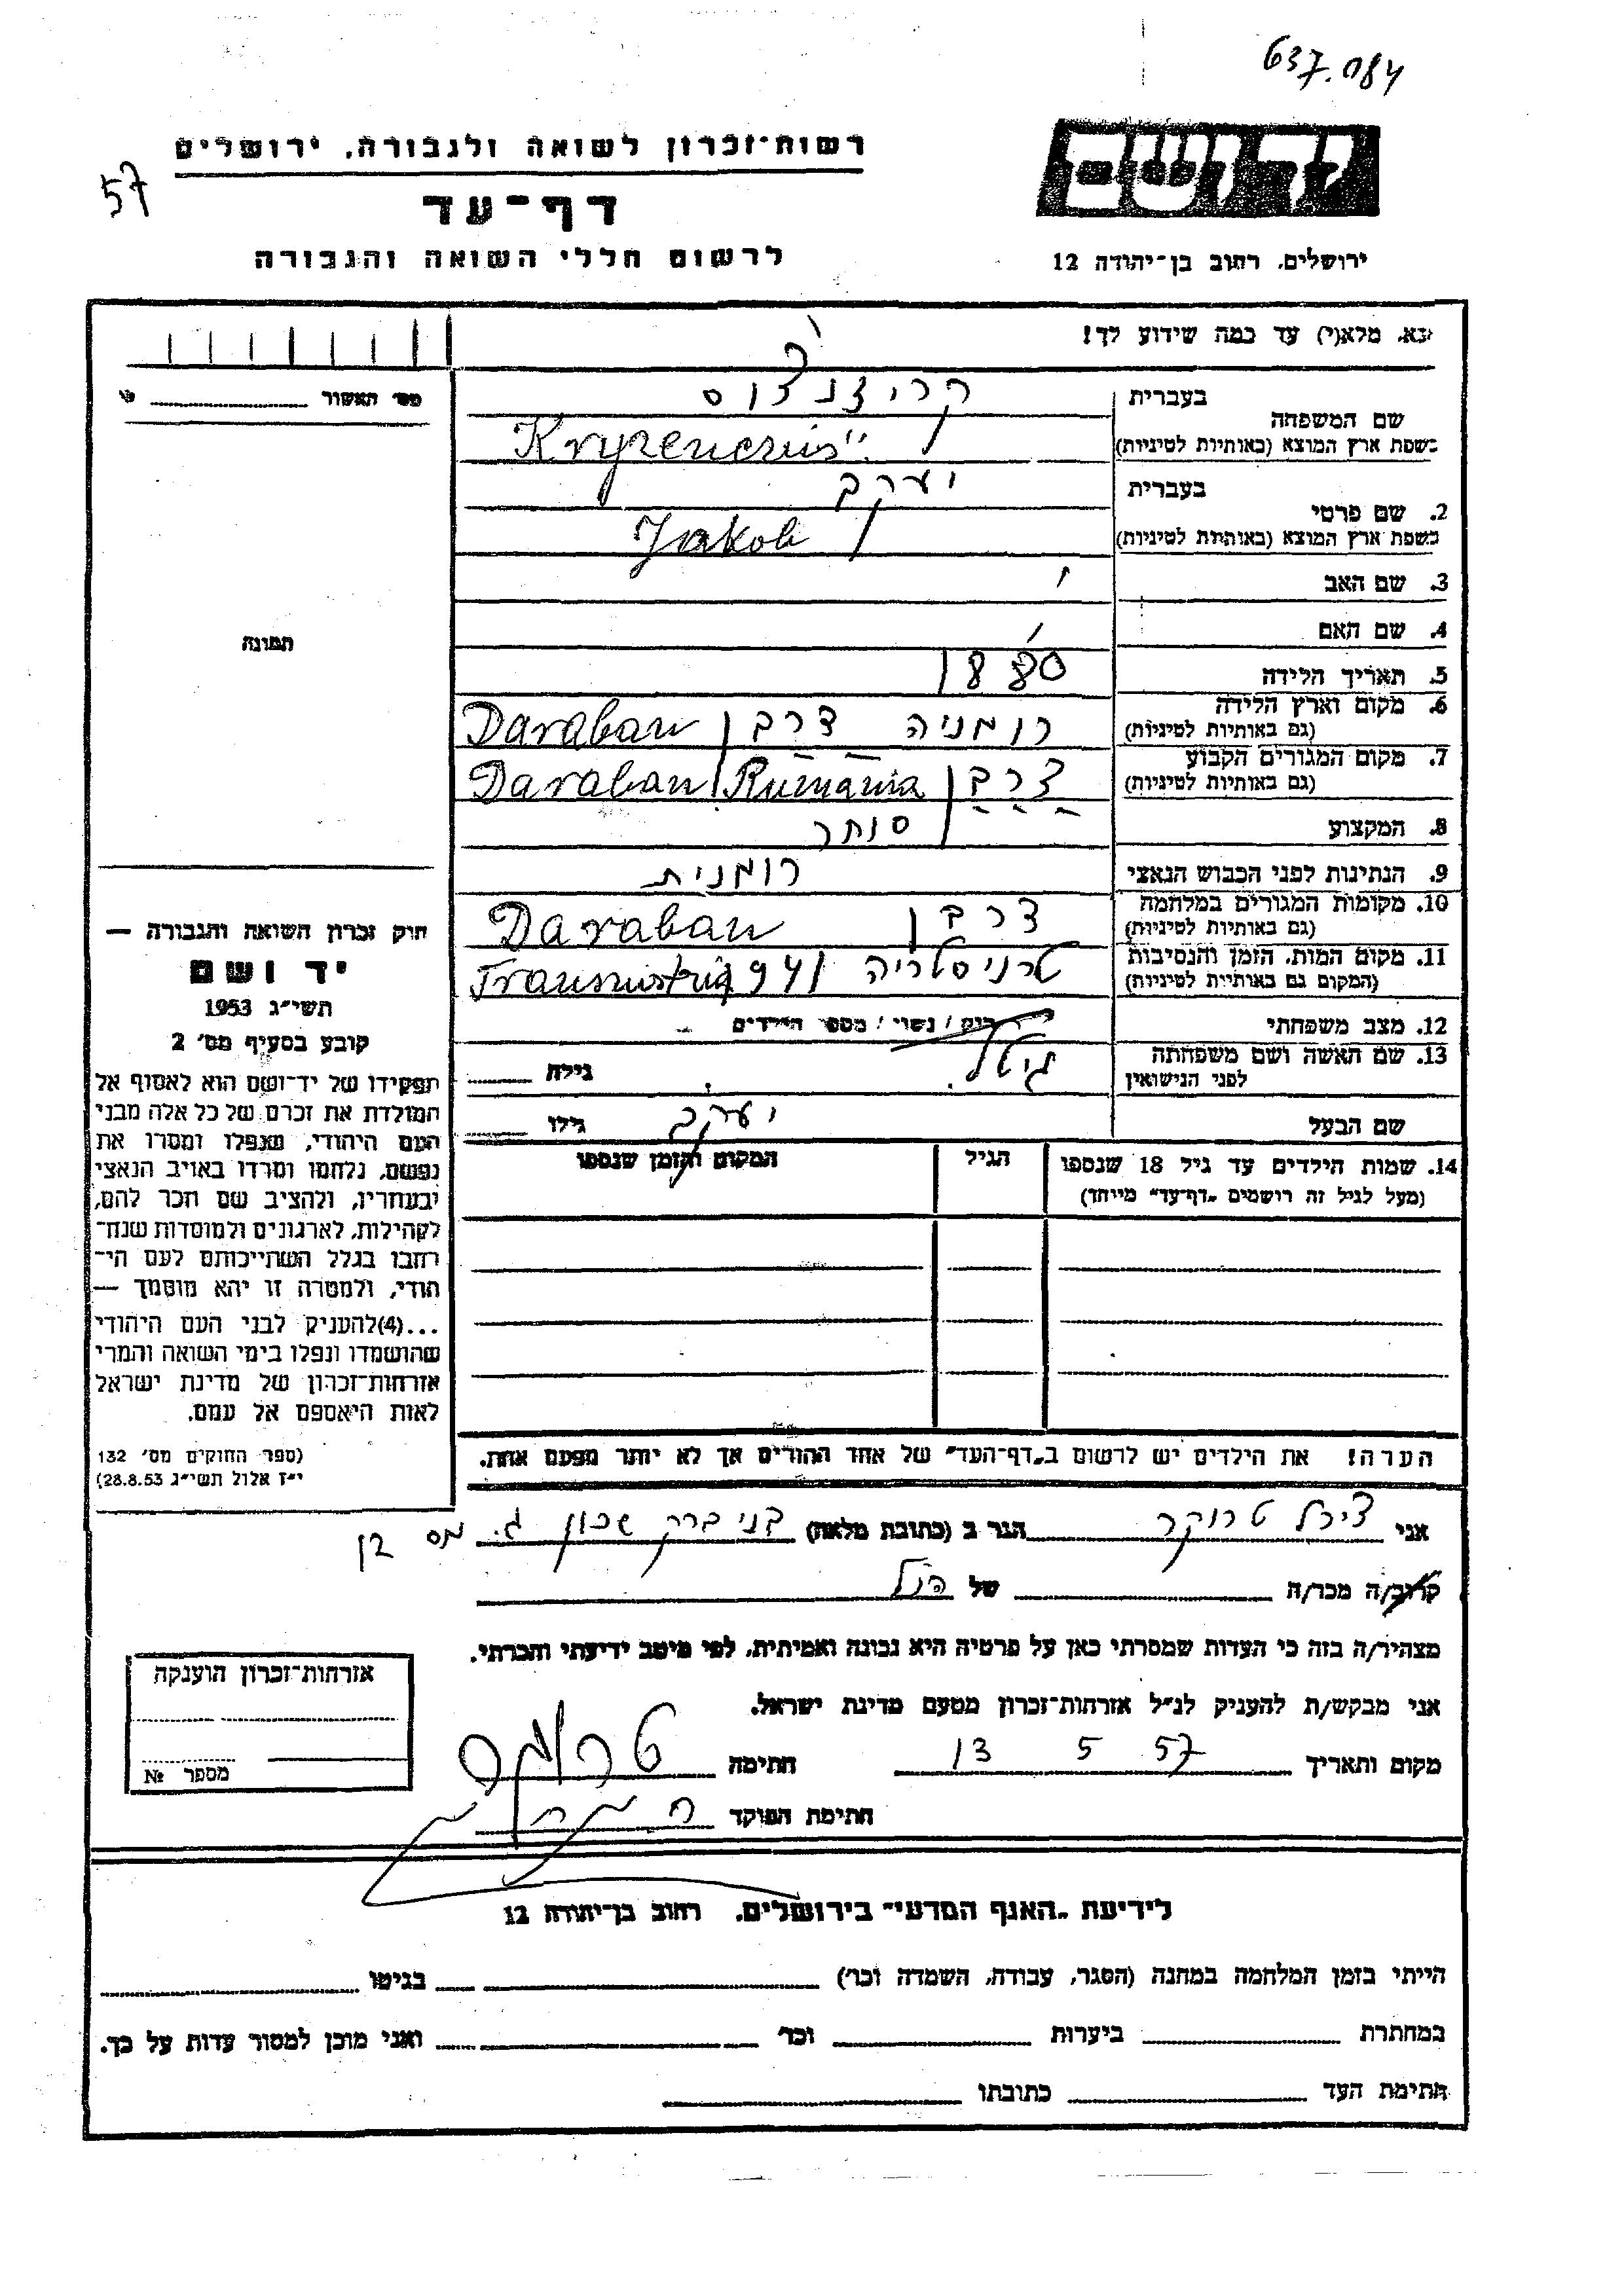 637.084
רשות־זכרון לשואה ולגבורה, ירושלים
57
דף־עד
לרשום חללי השואה והגבורה
יד ושם
ירושלים, רחוב בן־יהודה 12
נא, מלא(י) עד כמה שידוע לך!
מס׳ האשור
תמונה
שם המשפחה
בעברית
בשפת ארץ המוצא (באותיות לטיניות)
2. שם פרטי
בעברית יעקב
בשפת ארץ המוצא (באותיות לטיניות) Jakob
3. שם האב
4. שם האם
5. תאריך הלידה 1880
6. מקום וארץ הלידה רומניה דרבן Daraban
(גם באותיות לטיניות)
7. מקום המגורים הקבוע דרבן Daraban Rumania
(גם באותיות לטיניות)
8. המקצוע סוחר
9. הנתינות לפני הכבוש הנאצי רומנית
10. מקומות המגורים במלחמה דרבן Daraban
(גם באותיות לטיניות)
11. מקום המות, הזמן והנסיבות טרניסטריה 941
(המקום גם באותיות לטיניות)
12. מצב משפחתי רוק / נשוי / מספר הילדים
13. שם האשה ושם משפחתה גיטל גילה
לפני הנישואין
שם הבעל יעקב גילו
14. שמות הילדים עד גיל 18 שנספו הגיל המקום והזמן שנספו
(מעל לגיל זה רושמים „דף־עד״ מיוחד)
הערה! את הילדים יש לרשום ב„דף־העד״ של אחד ההורים אך לא יותר מפעם אחת.
חוק זכרון השואה והגבורה —
יד ושם
תשי״ג 1953
קובע בסעיף מס׳ 2
תפקידו של יד־ושם הוא לאסוף אל
המולדת את זכרם של כל אלה מבני
העם היהודי, שנפלו ומסרו את
נפשם, נלחמו ומרדו באויב הנאצי
ובעוזריו, ולהציב שם וזכר להם,
לקהילות, לארגונים ולמוסדות שנח־
רבו בגלל השתייכותם לעם הי־
הודי, ולמטרה זו יהא מוסמך —
...(4)להעניק לבני העם היהודי
שהושמדו ונפלו בימי השואה והמרי
אזרחות־זכרון של מדינת ישראל
לאות היאספם אל עמם.
(ספר החוקים מס׳ 132
י״ז אלול תשי״ג 28.8.53)
אני צירל טרוקר הגר ב (כתובת מלאה) בני ברק שכון ג.
קרוב/ה מכר/ה של הנ״ל
מצהיר/ה בזה כי העדות שמסרתי כאן על פרטיה היא נכונה ואמיתית, לפי מיטב ידיעתי והכרתי.
אני מבקש/ת להעניק לנ״ל אזרחות־זכרון מטעם מדינת ישראל.
מקום ותאריך 13 5 57 חתימה
חתימת הפוקד
אזרחות־זכרון הוענקה
מספר №
לידיעת „האגף המדעי״ בירושלים, רחוב בן־יהודה 12
הייתי בזמן המלחמה במחנה (הסגר, עבודה, השמדה וכו׳) בגיטו
במחתרת ביערות וכו׳ ואני מוכן למסור עדות על כך.
חתימת העד כתובתו